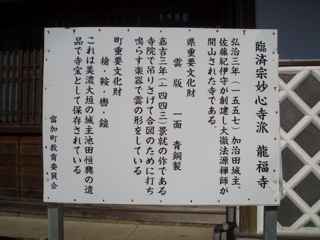 臨済宗妙心寺派 龍福寺
弘治三年(一五五七)加治田城主、
佐藤紀伊守が創建し大徹法源禅師が
開山された寺である。
県重要文化財
雲版 一面 青銅製
嘉吉三年(一四四三)景就の作である
寺院で吊りさげて合図のために打ち
鳴らす楽器で雲の形をしている
町重要文化財
槍・鞍・轡・鐙
これは美濃大垣の城主池田恒興の遺
品で寺宝として保存されている
富加町教育委員会